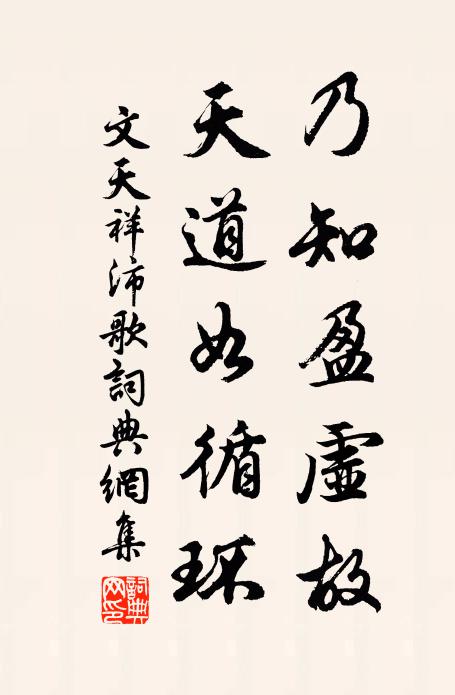 乃知盈虛故
天道如循环
文天祥沛歌詞典網集
詞典网印